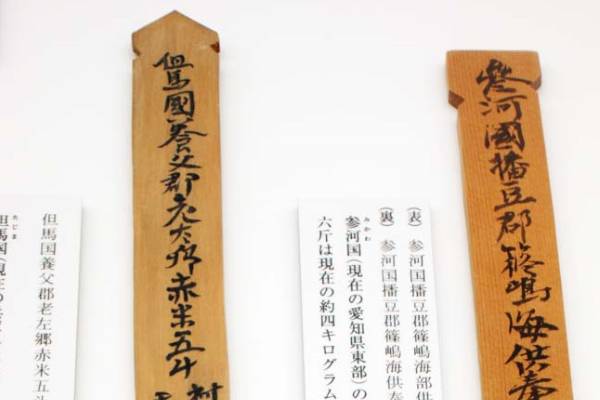 参河國播豆郡篠嶋海供奉
(表) 参河国播豆郡篠嶋海部供
(裏) 参河国播豆郡篠嶋海供奉
みかわ
参河国(現在の愛知県東部)の
六斤は現在の約四キログラム
但馬國養父郡老左郷赤米五斗
村
但馬国養父郡老左郷赤米五斗
たじま
但馬国(現在の